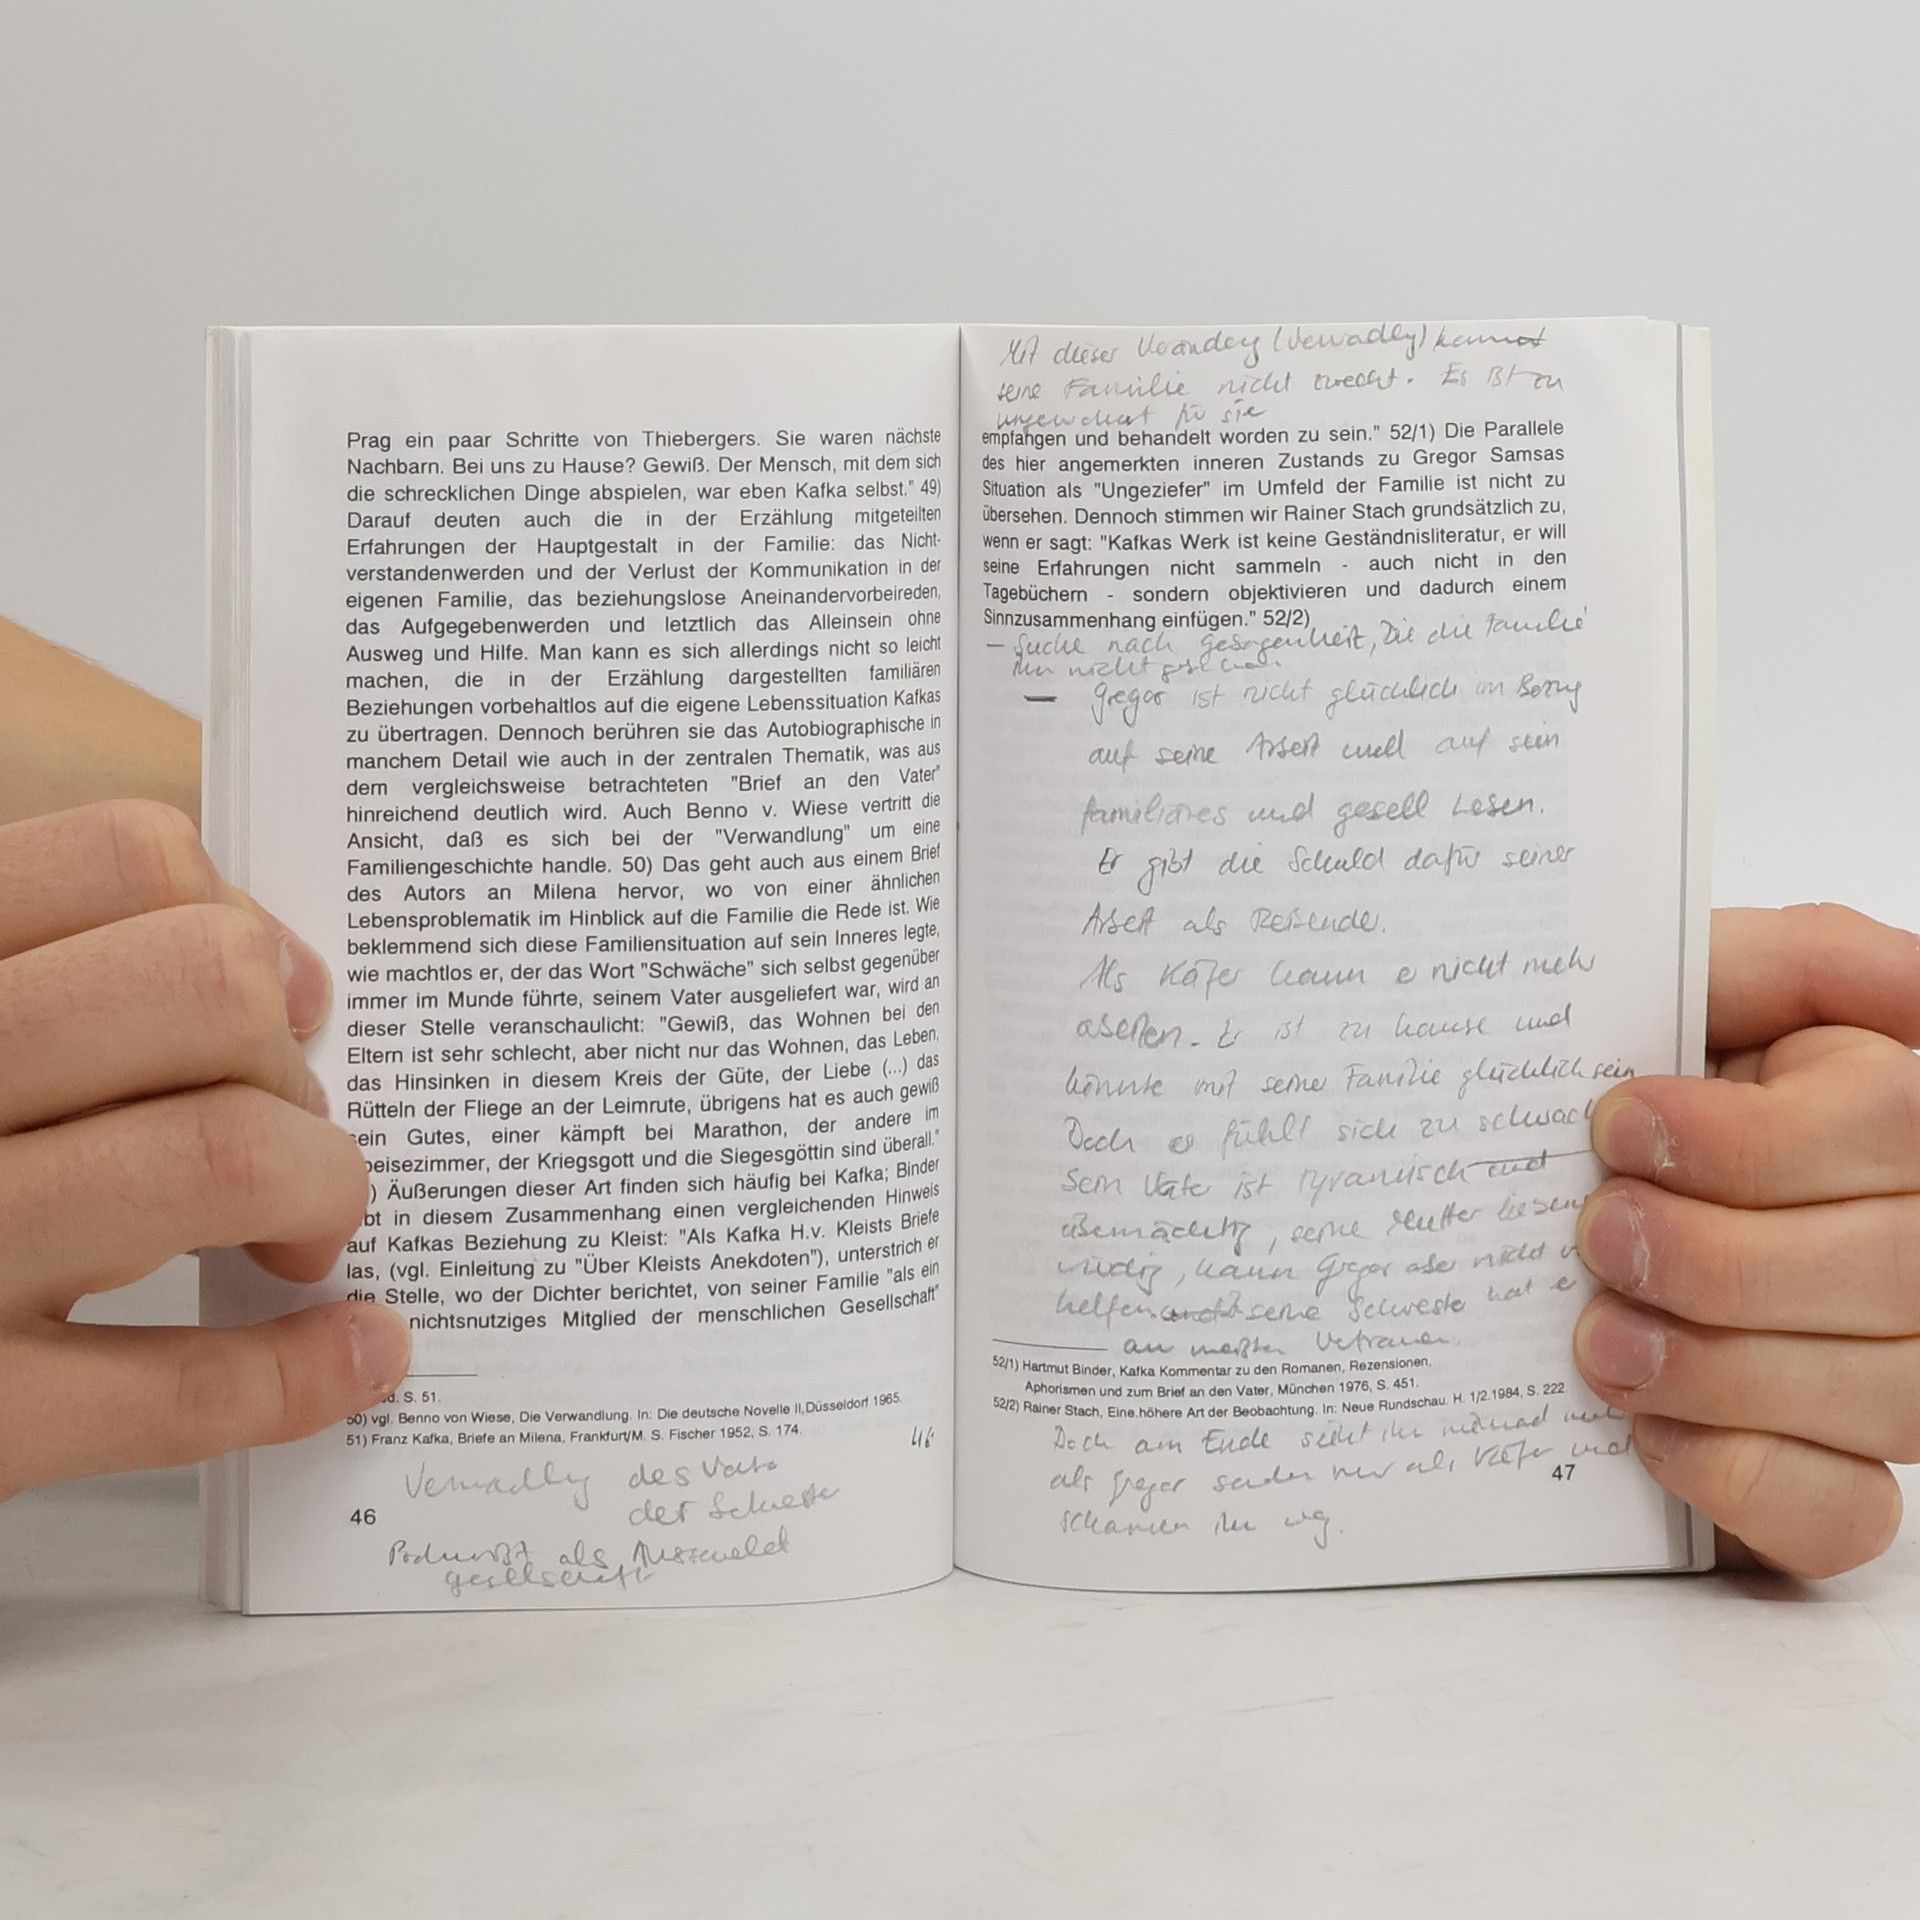 Prag ein paar Schritte von Thiebergers. Sie waren nächste
Nachbarn. Bei uns zu Hause? Gewiß. Der Mensch, mit dem sich
die schrecklichen Dinge abspielen, war eben Kafka selbst." 49)
Darauf deuten auch die in der Erzählung mitgeteilten
Erfahrungen der Hauptgestalt in der Familie: das Nicht-
verstandenwerden und der Verlust der Kommunikation in der
eigenen Familie, das beziehungslose Aneinandervorbeireden,
das Aufgegebenwerden und letztlich das Alleinsein ohne
Ausweg und Hilfe. Man kann es sich allerdings nicht so leicht
machen, die in der Erzählung dargestellten familiären
Beziehungen vorbehaltlos auf die eigene Lebenssituation Kafkas
zu übertragen. Dennoch berühren sie das Autobiographische in
manchem Detail wie auch in der zentralen Thematik, was aus
dem vergleichsweise betrachteten "Brief an den Vater"
hinreichend deutlich wird. Auch Benno v. Wiese vertritt die
Ansicht, daß es sich bei der "Verwandlung" um eine
Familiengeschichte handle. 50) Das geht auch aus einem Brief
des Autors an Milena hervor, wo von einer ähnlichen
Lebensproblematik im Hinblick auf die Familie die Rede ist. Wie
beklemmend sich diese Familiensituation auf sein Inneres legte,
wie machtlos er, der das Wort "Schwäche" sich selbst gegenüber
immer im Munde führte, seinem Vater ausgeliefert war, wird an
dieser Stelle veranschaulicht: "Gewiß, das Wohnen bei den
Eltern ist sehr schlecht, aber nicht nur das Wohnen, das Leben,
das Hinsinken in diesem Kreis der Güte, der Liebe (...) das
Rütteln der Fliege an der Leimrute, übrigens hat es auch gewiß
sein Gutes, einer kämpft bei Marathon, der andere im
peisezimmer, der Kriegsgott und die Siegesgöttin sind überall."
) Äußerungen dieser Art finden sich häufig bei Kafka; Binder
bt in diesem Zusammenhang einen vergleichenden Hinweis
auf Kafkas Beziehung zu Kleist: "Als Kafka H.v. Kleists Briefe
las, (vgl. Einleitung zu "Über Kleists Anekdoten"), unterstrich er
die Stelle, wo der Dichter berichtet, von seiner Familie "als ein
nichtsnutziges Mitglied der menschlichen Gesellschaft"
d. S. 51.
50) vgl. Benno von Wiese, Die Verwandlung. In: Die deutsche Novelle II, Düsseldorf 1965.
51) Franz Kafka, Briefe an Milena, Frankfurt/M. S. Fischer 1952, S. 174.
46
des Vate
46
der Schweste
als
gesellschaft
Mit dieser (Verwadlg) kannst
seine Familie nicht zurecht. Es ist zu
für sie
empfangen und behandelt worden zu sein." 52/1) Die Parallele
des hier angemerkten inneren Zustands zu Gregor Samsas
Situation als "Ungeziefer" im Umfeld der Familie ist nicht zu
übersehen. Dennoch stimmen wir Rainer Stach grundsätzlich zu,
wenn er sagt: "Kafkas Werk ist keine Geständnisliteratur, er will
seine Erfahrungen nicht sammeln - auch nicht in den
Tagebüchern - sondern objektivieren und dadurch einem
Sinnzusammenhang einfügen." 52/2)
- Suche nach Geborgenheit, Die die Familie
ihm nicht
- Gregor ist nicht glücklich im Bezug
auf seine Arbeit und auf sein
familiäres und gesell Leben.
Er gibt die Schuld dafür seiner
Arbeit als Reisender.
Als Käfer kann e nicht mehr
arbeiten. Er ist zu hause und
könnte mit seiner Familie glücklich sein
Doch er fühlt sich zu schwach
Sein Vater ist tyrannisch und
übermächtig, seine Mutter liebens
würdig, kann Gregor aber nicht
helfen. seine Schweste hat e
am meisten Vertrauen.
52/1) Hartmut Binder, Kafka Kommentar zu den Romanen, Rezensionen,
Aphorismen und zum Brief an den Vater, München 1976, S. 451.
52/2) Rainer Stach, Eine höhere Art der Beobachtung. In: Neue Rundschau. H. 1/2.1984, S. 222.
Doch am Ende sieht ihn niemand mehr
als Gregor sonden nur als Käfer und
47
schämen ihn weg.